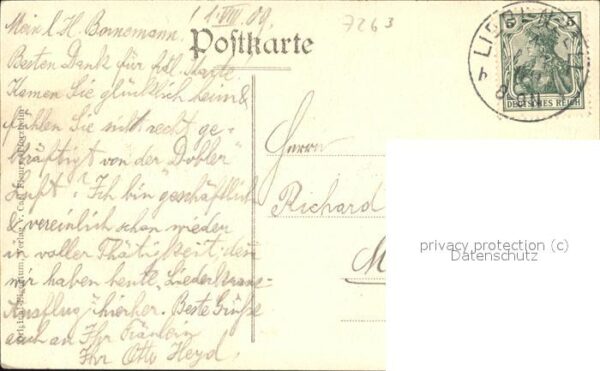 1.VIII.09.
7263
Mein l. H. Bonnemann!
Postkarte
Besten Dank für frdl. Karte!
Kamen Sie glücklich heim &
fühlen Sie sich recht ge-
kräftigt von der "Dobler
Luft"? Ich bin geschäftlich
& vereinlich schon wieder
in voller Thätigkeit, denn
wir haben heute "Liederkranz-
Ausflug" hierher. Beste Grüße
auch an Ihr Fräulein
Ihr Otto Heyd
Herrn
Richard
M
5
5
DEUTSCHES REICH
8-9N
privacy protection (c)
Datenschutz
Verlag v. Carl